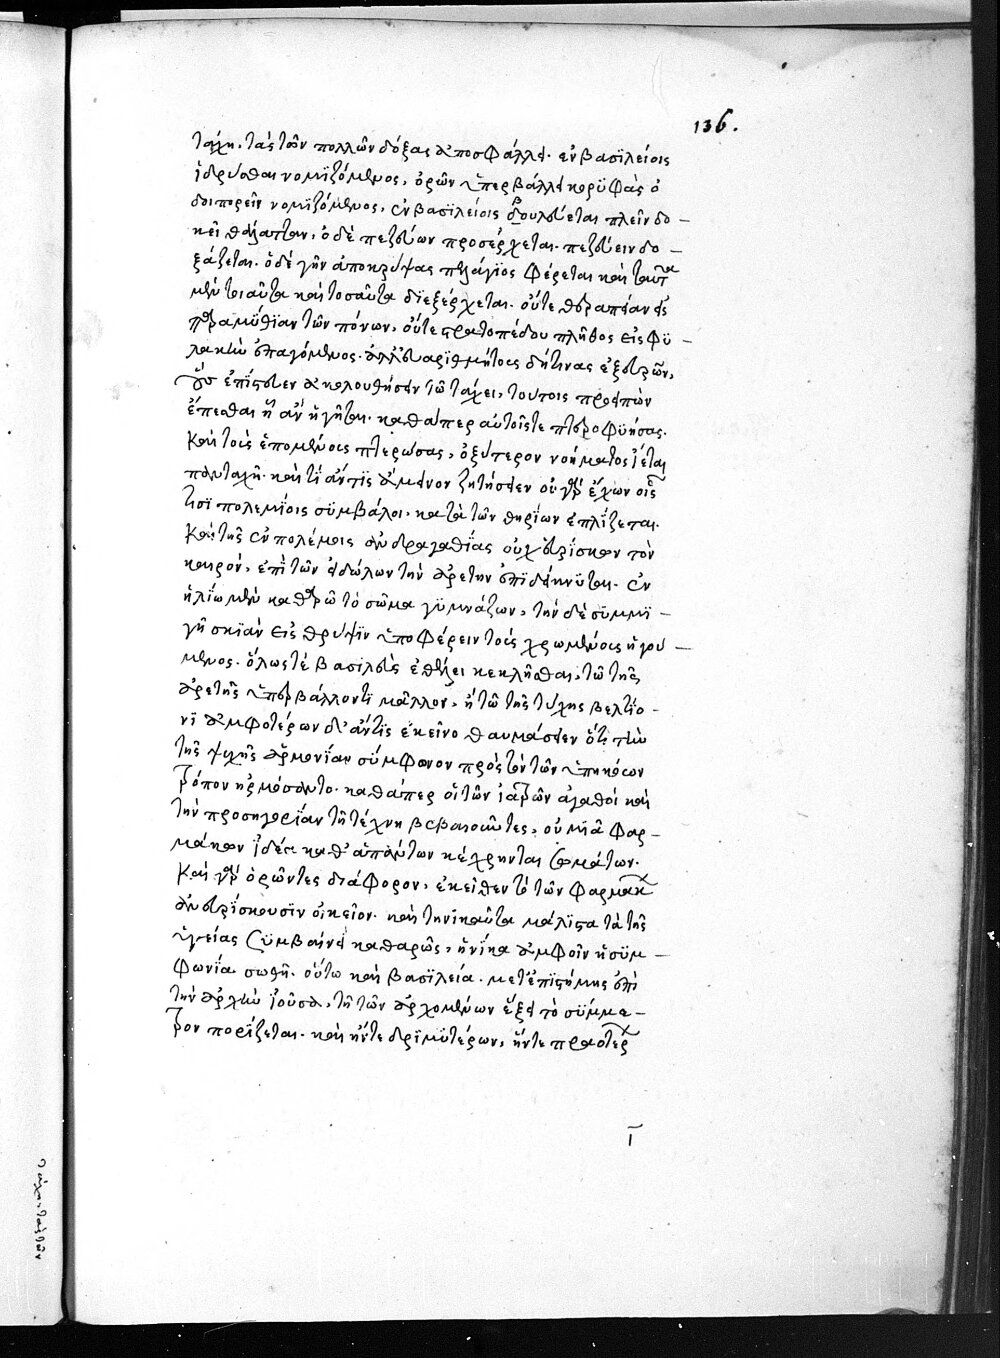 136.
τάχη. τὰς τῶν πολλῶν δόξας ἀποσφάλλει. ἐν βασϊλείοις
ἱδρύσθαι νομϊζόμενος, ὀρῶν ὑπερβάλλει κορϋφὰς ὁ
δοιπορεῖν νομϊζόμενος, ἐν βασϊλείοις βουλεύεται πλεῖν δο –
κεῖ θάλατταν, ὁ δὲ πεζεύων προσέρχεται. πεζεύειν δο –
ξάζεται. ὁ δὲ γῆν ἀποκρύψας πελάγϊος φέρεται καὶ ταῦτα
μὲν τοιαῦτα καὶ τοσαῦτα διεξέρχεται. οὔτε θεραπείαν εἰς
παραμϋθίαν τῶν πόνων, οὔτε στρατοπέδου πλῆθος εἰς φϋ –
λακὴν ἐπαγόμενος. ἀλλ' εὐαριθμήτους δή τινας ἐξευρῶν,
οὓς ἐπίστευεν ἀκολουθήσειν τῷ τάχει, τούτοις προειπὼν
ἕπεσθαι ᾗ ἂν ἡγῆται. καθάπερ αὐτός τε πτεροφϋήσας.
καὶ τοὺς ἑπομένους πτερώσας, ὀξύτερον νοήματος ἵεται
πανταχῆ. καὶ τί ἄν τις ἄμεινον ζητήσειεν οὐ γὰρ ἔχων οἷς
τισὶ πολεμίοις σϋμβάλοι, κατὰ τῶν θηρίων ὁπλίζεται.
καὶ τῆς ἐν πολέμοις ἀνδραγαθίας οὐχ εὑρίσκων τὸν
καιρὸν, ἐπὶ τῶν εἰδώλων τὴν ἀρετὴν ἐπιδείκνϋται. ἐν
ἡλίῳ μὲν καθαρῷ τὸ σῶμα γϋμνάζων, τὴν δὲ σϋμμϊ –
γῆ σκϊὰν εἰς θρύψιν ὑποφέρειν τοὺς χρωμένους ἡγού –
μενος. ὅλως τὲ βασϊλεὺς ἐθέλει κεκλῆσθαι, τῷ τῆς
ἀρετῆς ὑπερβάλλοντϊ μᾶλλον, ἢ τῷ τῆς τύχης βελτίο –
νϊ ἀμφοτέρων δ' ἄν τϊς ἐκεῖνο θαυμάσειεν ὅτι τὴν
τῆς ψυχῆς ἁρμονίαν σύμφωνον πρὸς τὸν τῶν ὑπηκόων
τρόπον ἡρμόσαντο. καθάπερ οἱ τῶν ἰατρῶν ἀγαθοὶ καὶ
τὴν προσηγορίαν τῇ τέχνῃ βεβαιοῦντες, οὐ μιᾷ φαρ –
μάκων ἰδέᾳ καθ' ἁπάντων κέχρηνται σωμάτων.
καὶ γὰρ ὁρῶντες διάφορον, ἐκεῖθεν τὸ τῶν φαρμάκων
ἀνευρίσκουσϊν οἰκεῖον. καὶ τηνϊκαῦτα μάλιστα τὰ τῆς
ὑγιείας σϋμβαίνει καθαρῶς, ἡνίκα ἀμφοῖν ἡ σϋμ –
φωνία σωθῇ. οὕτω καὶ βασϊλεία. μετ' ἐπϊστήμης ἐπὶ
τὴν ἀρχὴν ἰοῦσα, τῇ τῶν ἀρχομένων ἕξει τὸ σύμμε –
τρον πορίζεται. καὶ ἤν τε δρϊμϋτέρων, ἤν τε πραοτέρων
ι
τάχη. τὰς τῶν